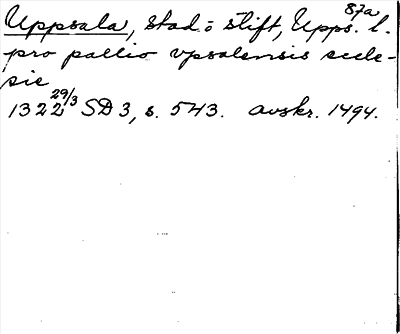 87a
Uppsala, stad o stift, Upps. l.
pro pallio vpsalensis eccle-
sie
1322 29/3 SD 3, s. 543. avskr. 1494.